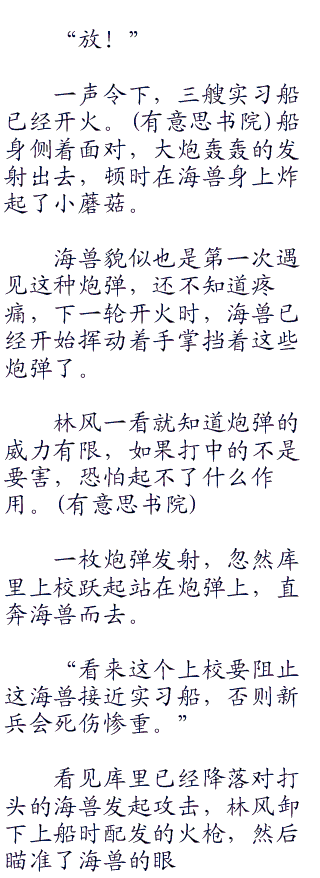 “放！”
一声令下，三艘实习船
已经开火。(有意思书院)船
身侧着面对，大炮轰轰的发
射出去，顿时在海兽身上炸
起了小蘑菇。
海兽貌似也是第一次遇
见这种炮弹，还不知道疼
痛，下一轮开火时，海兽已
经开始挥动着手掌挡着这些
炮弹了。
林风一看就知道炮弹的
威力有限，如果打中的不是
要害，恐怕起不了什么作
用。(有意思书院)
一枚炮弹发射，忽然库
里上校跃起站在炮弹上，直
奔海兽而去。
“看来这个上校要阻止
这海兽接近实习船，否则新
兵会死伤惨重。”
看见库里已经降落对打
头的海兽发起攻击，林风卸
下上船时配发的火枪，然后
瞄准了海兽的眼